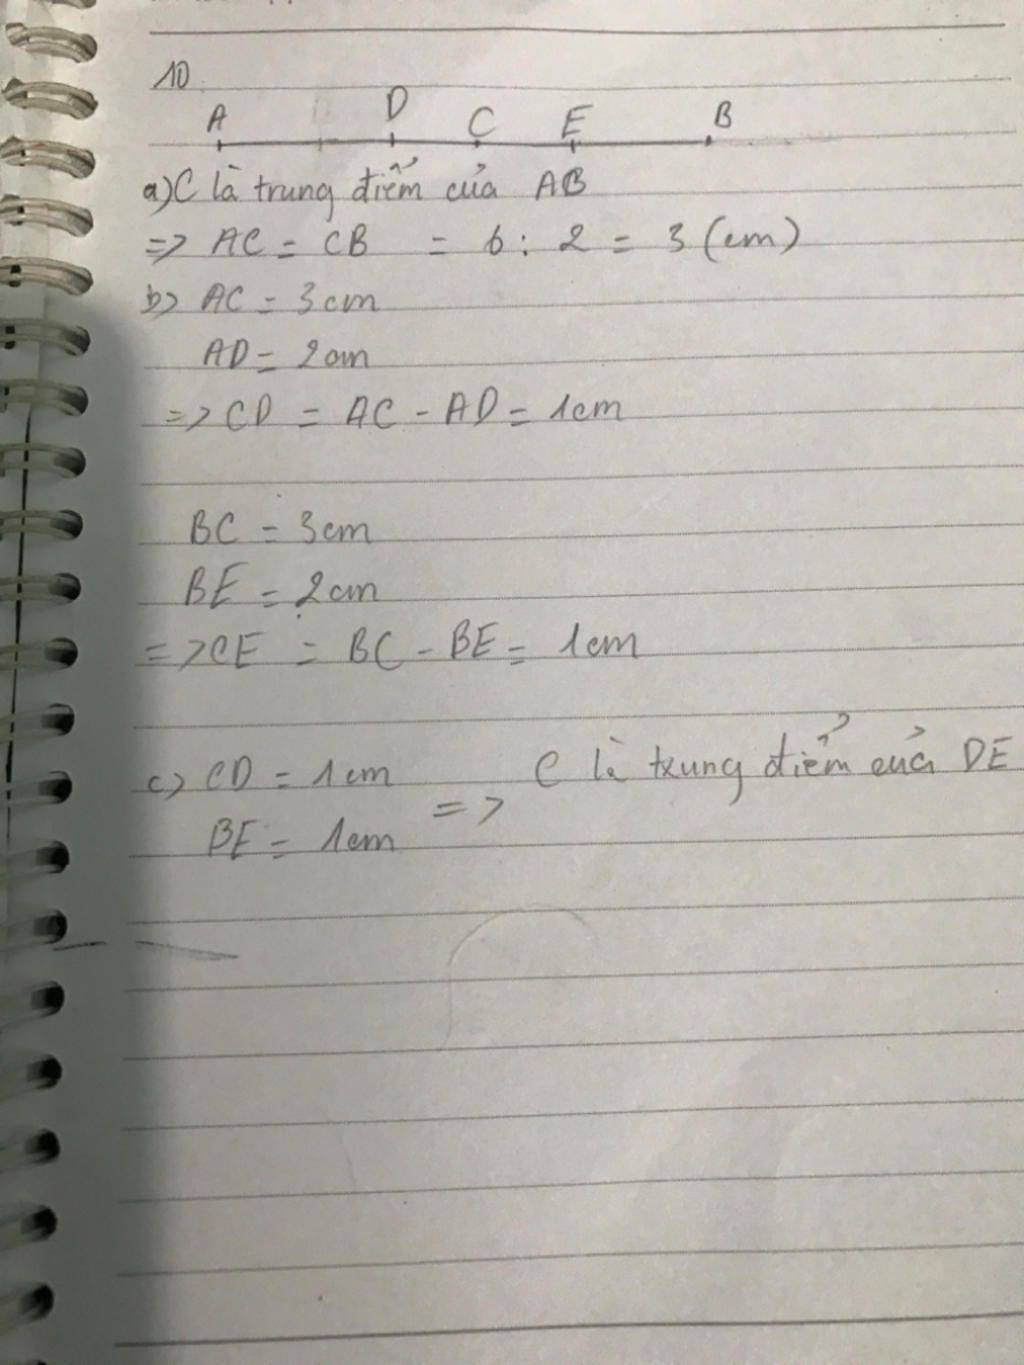 10.
A D C E B
a) C là trung điểm của AB
=> AC = CB = 6 : 2 = 3 (cm)
b) AC = 3 cm
AD = 2 cm
=> CD = AC - AD = 1 cm
BC = 3 cm
BE = 2 cm
=> CE = BC - BE = 1 cm
c) CD = 1 cm
=> C là trung điểm của DE
BE = 1 cm